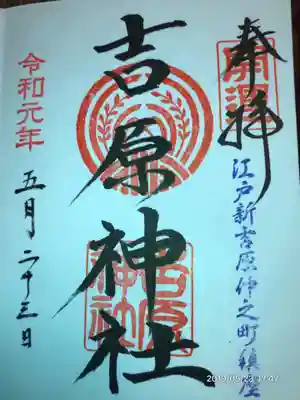 奉拝
開運
江戸新吉原仲之町鎮座
吉原神社
吉原神社
令和元年
五月二十三日